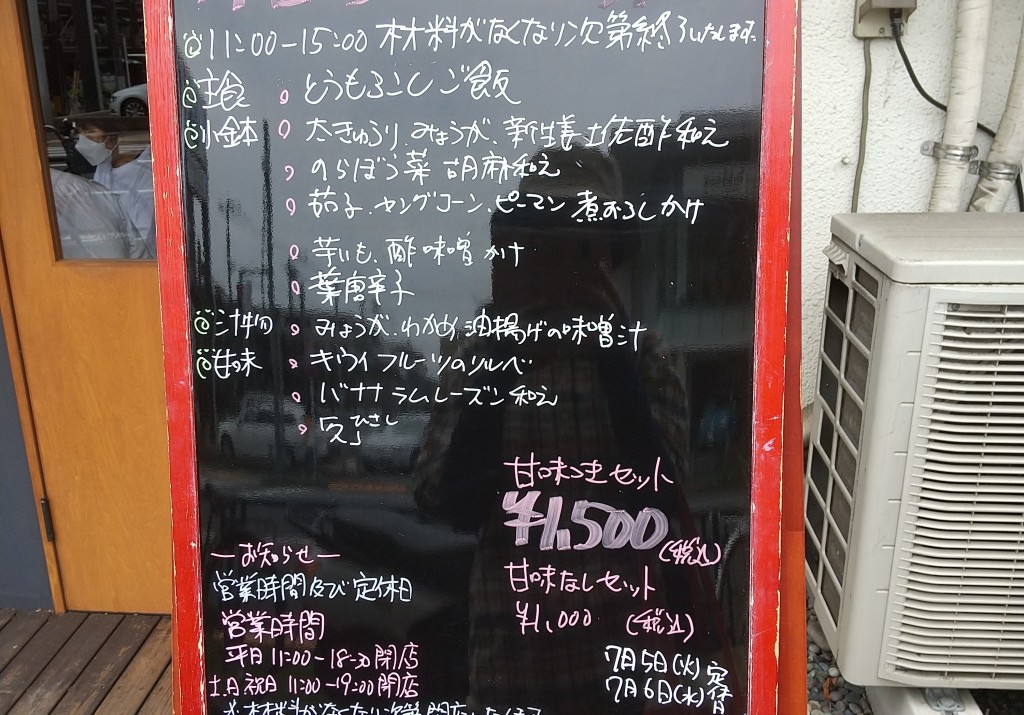 11:00-15:00 材料がなくなり次第終了いたします。
主食 とうもろこしご飯
小鉢 大きゅうり、みょうが、新生姜 土佐酢和え
のらぼう菜 胡麻和え
茄子、ヤングコーン、ピーマン 煮おろしかけ
芋いも、酢味噌かけ
葉唐辛子
汁物 みょうが、わかめ、油揚げの味噌汁
甘味 キウイフルーツのソルベ
バナナラムレーズン和え
ひさし
甘味つきセット
¥1,500
(税込)
甘味なしセット
¥1,000 (税込)
ーお知らせー
営業時間及び定休日
営業時間
平日 11:00-18:30閉店
土日祝日 11:00-19:00閉店
7月5日(火)
7月6日(水)
定休日